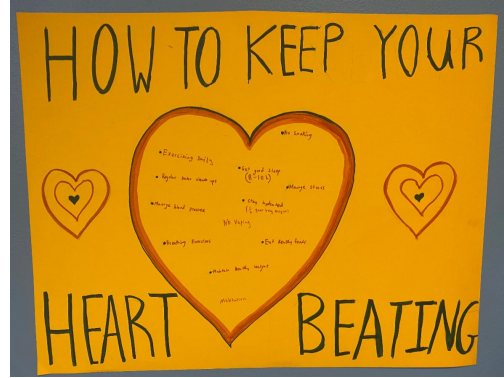 HOW TO KEEP YOUR
• No Smoking
• Exercising Daily
• Get good sleep
• Regular check ups
• Manage Stress
• Manage blood pressure
• Stay hydrated
No Vaping
• Breathing Exercises
• Eat Healthy foods
• Maintain Healthy Weight
Meditation
HEART BEATING